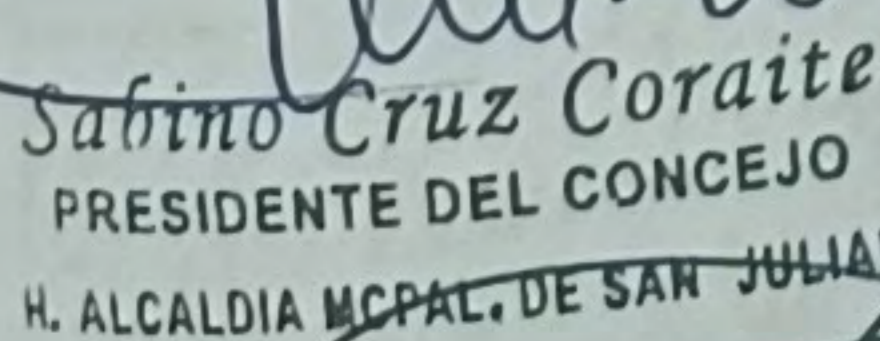 Sabino Cruz Coraite
PRESIDENTE DEL CONCEJO
H. ALCALDIA MCPAL. DE SAN JULIA